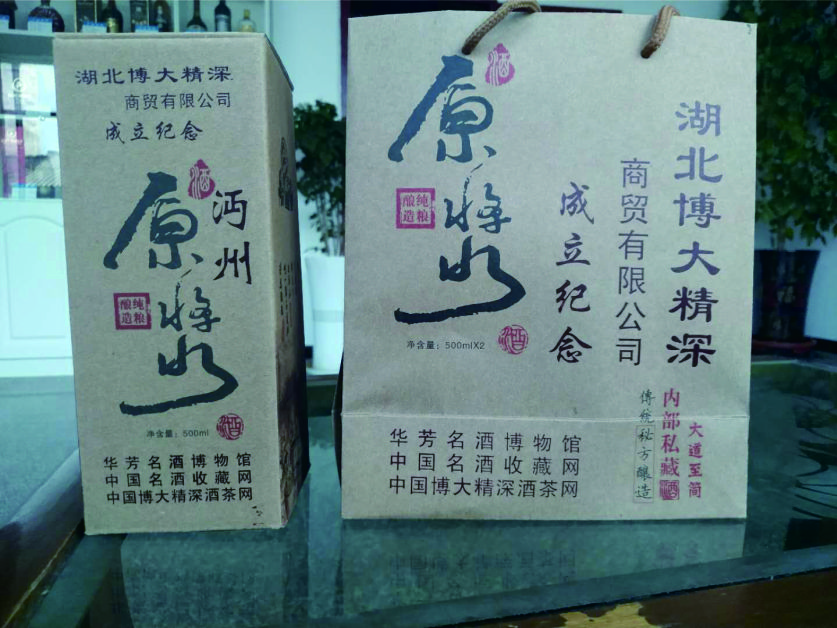 湖北博大精深
商贸有限公司
成立纪念
酒
沔州
原浆
纯粮
酿造
净含量：500ml
酒
华芳名酒博物馆
中国名酒收藏网
中国博大精深酒茶网
湖北博大精深
商贸有限公司
成立纪念
酒
原浆
纯粮
酿造
净含量：500mlX2
酒
大道至简
内部私藏
酒
傳統秘方釀造
华芳名酒博物馆
中国名酒收藏网
中国博大精深酒茶网